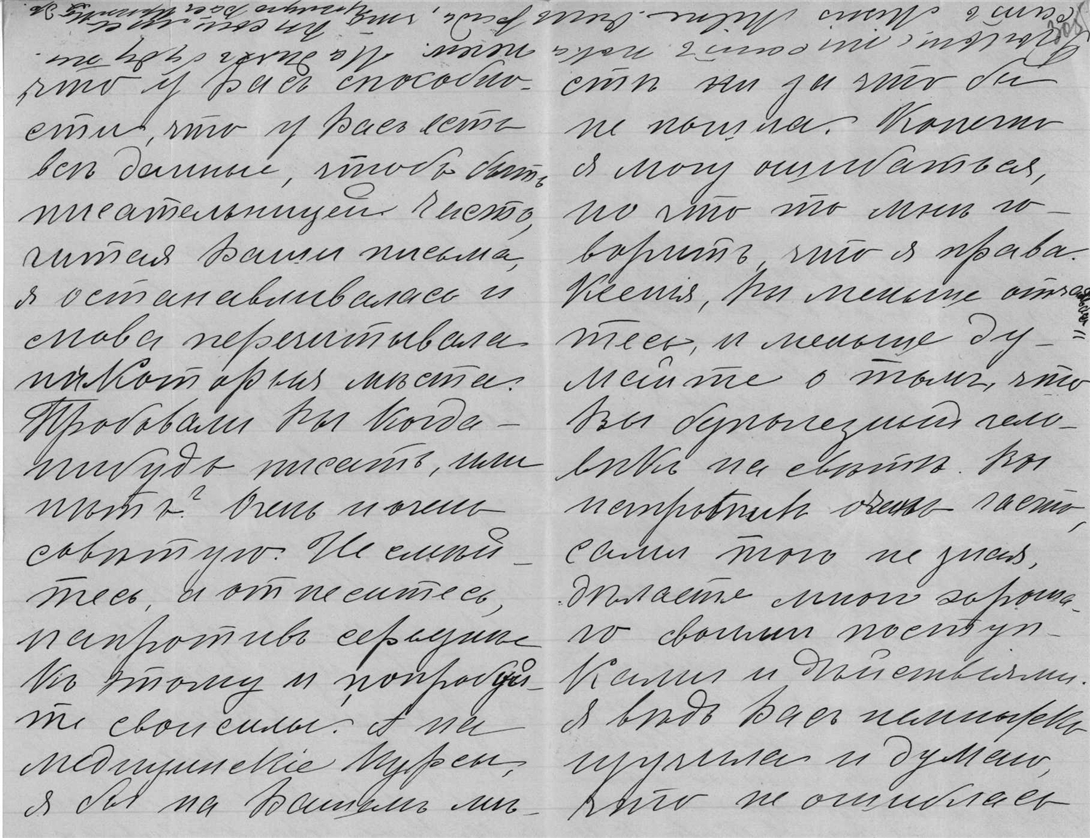 что у Васъ способно-
сти, что у Васъ есть
всѣ данныя, чтобъ быть
писательницей. Часто,
читая Ваши письма,
я останавливалась и
снова перечитывала
нѣкоторыя мѣста.
Пробовали Вы когда-
нибудь писать, или
нѣтъ? Очень и очень
совѣтую. Не смѣй-
тесь, а отнеситесь,
напротивъ серьезнѣе
къ этому и попробуй-
те свои силы. А на
медицинскіе курсы,
я бы на Вашемъ мѣ-
стѣ ни за что бы
не пошла. Конечно
я могу ошибаться,
но что то мнѣ го-
воритъ, что я права.
Ксенія, Вы меньше отчаявай-
тесь, и меньше ду-
майте о томъ, что
Вы безполезный чело-
вѣкъ на свѣтѣ. Вы
напротивъ очень часто,
сами того не зная,
дѣлаете много хороша-
го своими поступ-
ками и дѣйствіями.
Я вѣдь Васъ немножко
изучила и думаю,
что не ошиблась
308